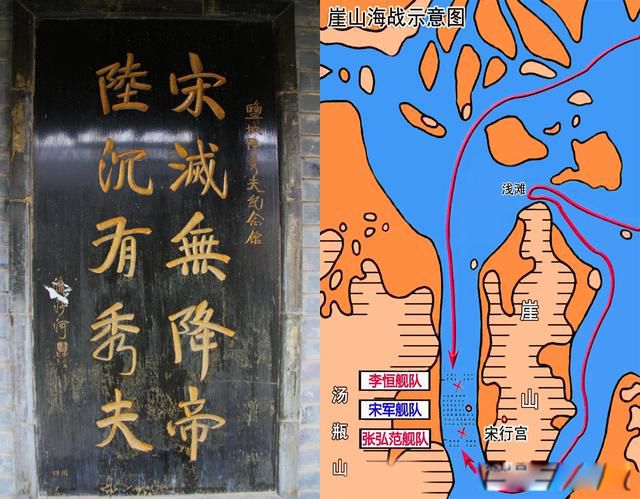 鹽城陸秀夫纪念館
宋滅無降帝
陸沉有秀夫
四川
崖山海战示意图
浅滩
崖山
李恒舰队
宋军舰队
张弘范舰队
宋行宫
汤瓶山